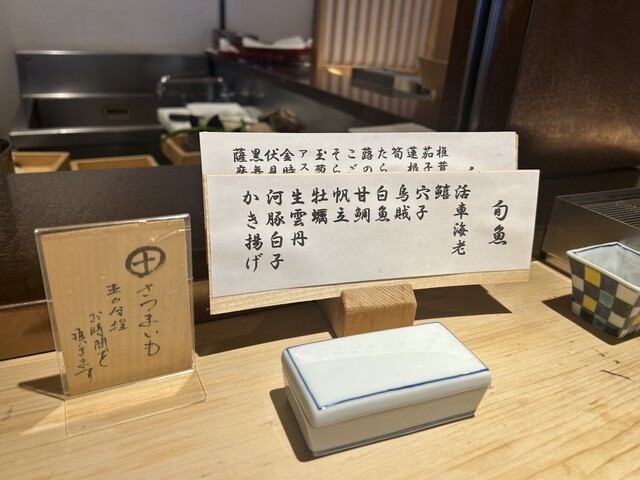 旬魚
活車海老
鱚
穴子
烏賊
白魚
甘鯛
帆立
牡蠣
生雲丹
河豚白子
かき揚げ
椎茸
茄子
蓮根
筍
たら
蕗の
こご
そら
玉葱
アス
金時
伏見
黒
薩摩
さつまいも
お時間を
頂きます